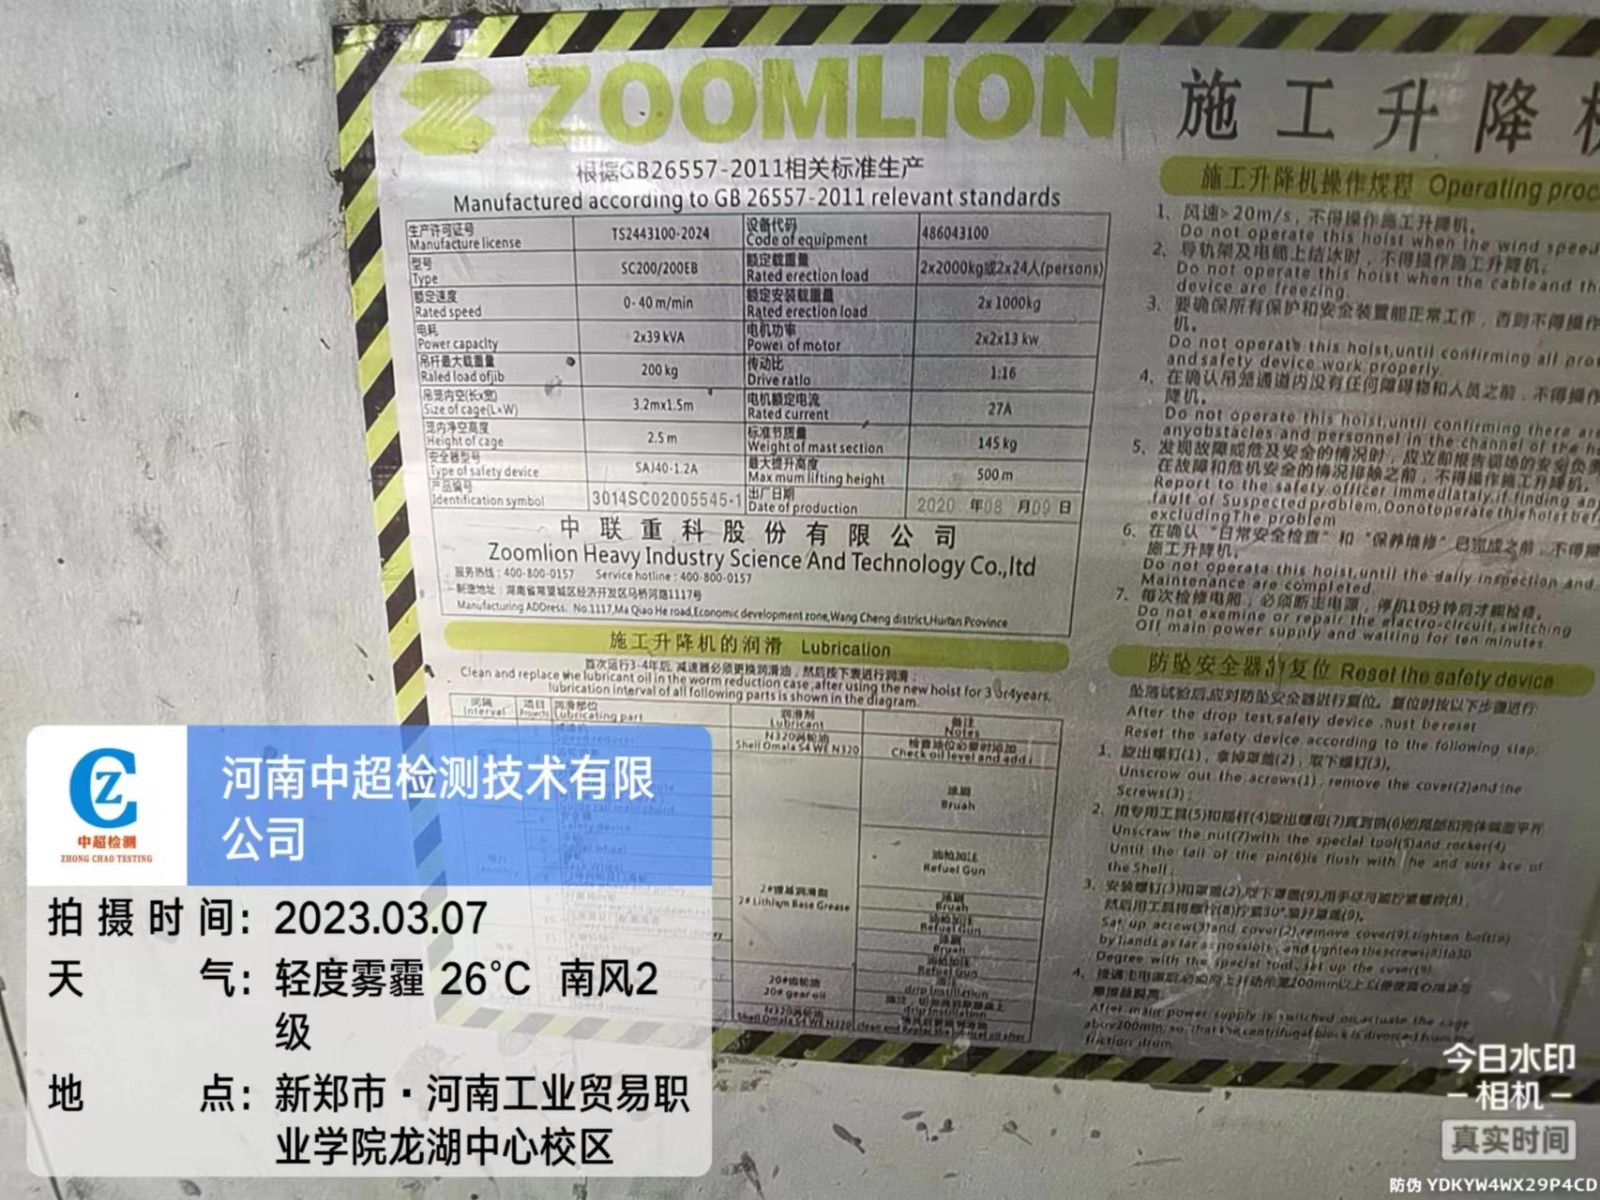 ZOOMLION
根据GB26557-2011相关标准生产
Manufactured according to GB 26557-2011 relevant standards
生产许可证号 TS2443100-2024 设备代码 486043100
Manufacture license Code of equipment
型号 SC200/200EB 额定载重量 2x2000kg或2x24人(persons)
Type Rated erection load
额定速度 0-40 m/min 额定安装载重量 2x1000kg
Rated speed Rated erection load
电耗 2x39 kVA 电机功率 2x2x13 kw
Power capacity Powei of motor
吊杆最大载重量 200 kg 传动比 1:16
Raled load ofjib Drive ratlo
吊笼内空(长x宽) 3.2mx1.5m 电机额定电流 27A
Size of cage(LxW) Rated current
笼内净空高度 2.5 m 标准节质量 145 kg
Height of cage Weight of mast section
安全器型号 SAJ40-1.2A 最大提升高度 500 m
Type of safety device Max mum lifting height
产品编号 3014SC02005545-1 出厂日期 2020 年08 月09 日
Identification symbol Date of production
中联重科股份有限公司
Zoomlion Heavy Industry Science And Technology Co.,ltd
服务热线：400-800-0157 Service hotline：400-800-0157
制造地址：湖南省常望城区经济开发区马桥河路1117号
Manufacturing ADDress. No.1117,Ma Qiao He road,Economic development zone,Wang Cheng district,Hunan Province
施工升降机的润滑 Lubrication
首次运行3-4年后,减速器必须更换润滑油，然后按下表进行润滑：
Clean and replace the lubricant oil in the worm reduction case,after using the new hoist for 3 or4years,
lubrication interval of all following parts is shown in the diagram.
间隔 项目 润滑部位 润滑剂 备注
Interval Projects Lubricating part Lubricant Notes
N320涡轮油
Shell Omala S4 WE N320 Check oil level and add i
涂刷
Bruah
油枪加注
Refuel Gun
2#锂基润滑脂
2# Lithlum Base Grease
涂刷
Bruah
油枪加注
Refuel Gun
涂刷
Bruah
油枪加注
Refuel Gun
20#齿轮油
20# gear oil
drip Instillation
N320涡轮油
Shell Omala S4 WE N320
施工升降
施工升降机操作规程 Operating proc
1、风速>20m/s，不得操作施工升降机。
Do not operate this hoist when the wind speed
2、导轨架及电缆上结冰时，不得操作施工升降机。
Do not operate this hoist when the cableand th
device are freezing.
3、要确保所有保护和安全装置能正常工作，否则不得操作
机。
Do not operate this hoist,until confirming all pro
and safety device work properly.
4、在确认吊笼通道内没有任何障碍物和人员之前，不得操作
降机。
Do not operate this hoist,until confirming there are
anyobstacles and personnel in the channel of the h
5、发现故障或危及安全的情况时，应立即报告现场的安全负责
在故障和危机安全的情况排除之前，不得操作施工升降机。
Report to the safety officer immediataly,if finding an
fault of Suspected problem,Donotoperate this hoist bef
excludingThe problem
6、在确认“日常安全检查”和“保养维修”已完成之前，不得
施工升降机。
Do not operata this hoist,until the daily inspection and
Maintenance are completed.
7、每次检修电厢，必须断主电源，停机10分钟后才能检修。
Do not exemine or repair the electro-circuit,switching
Off main power supply and waiting for ten minutes.
防坠安全器的复位 Reset the safety device
坠落试验后,应对防坠安全器进行复位。复位时按以下步骤进行:
After the drop test,safety device must bereset
Reset the safety device according to the following step.
1、旋出螺钉(1)，拿掉罩盖(2)，取下螺钉(3)。
Unscrow out the acrows(1), remove the cover(2)and the
Screws(3)；
2、用专用工具(5)和摇杆(4)旋出螺母(7)直到销(6)的尾部和壳体端面平齐
Unscraw the nut(7)with the special tool(5)and rocker(4)
Until the tail of the pin(6)is flush with he and suts ace of
the Shell；
3、安装螺钉(3)和罩盖(2),取下罩盖(9),用手尽可能拧紧螺栓(8),
然后用工具将螺栓(8)拧紧30°,装好罩盖(9)。
Degree with the special tool, set up the cover(9).
4、
After main power supply is switched on,actuate the cage
above200mm, so that the centrifugal block is divorced from the
friction drum.
中超检测
ZHONG CHAO TESTING
河南中超检测技术有限
公司
拍摄时间：2023.03.07
天气：轻度雾霾 26℃ 南风2
级
地点：新郑市·河南工业贸易职
业学院龙湖中心校区
今日水印
相机
真实时间
防伪 YDKYW4WX29P4CD